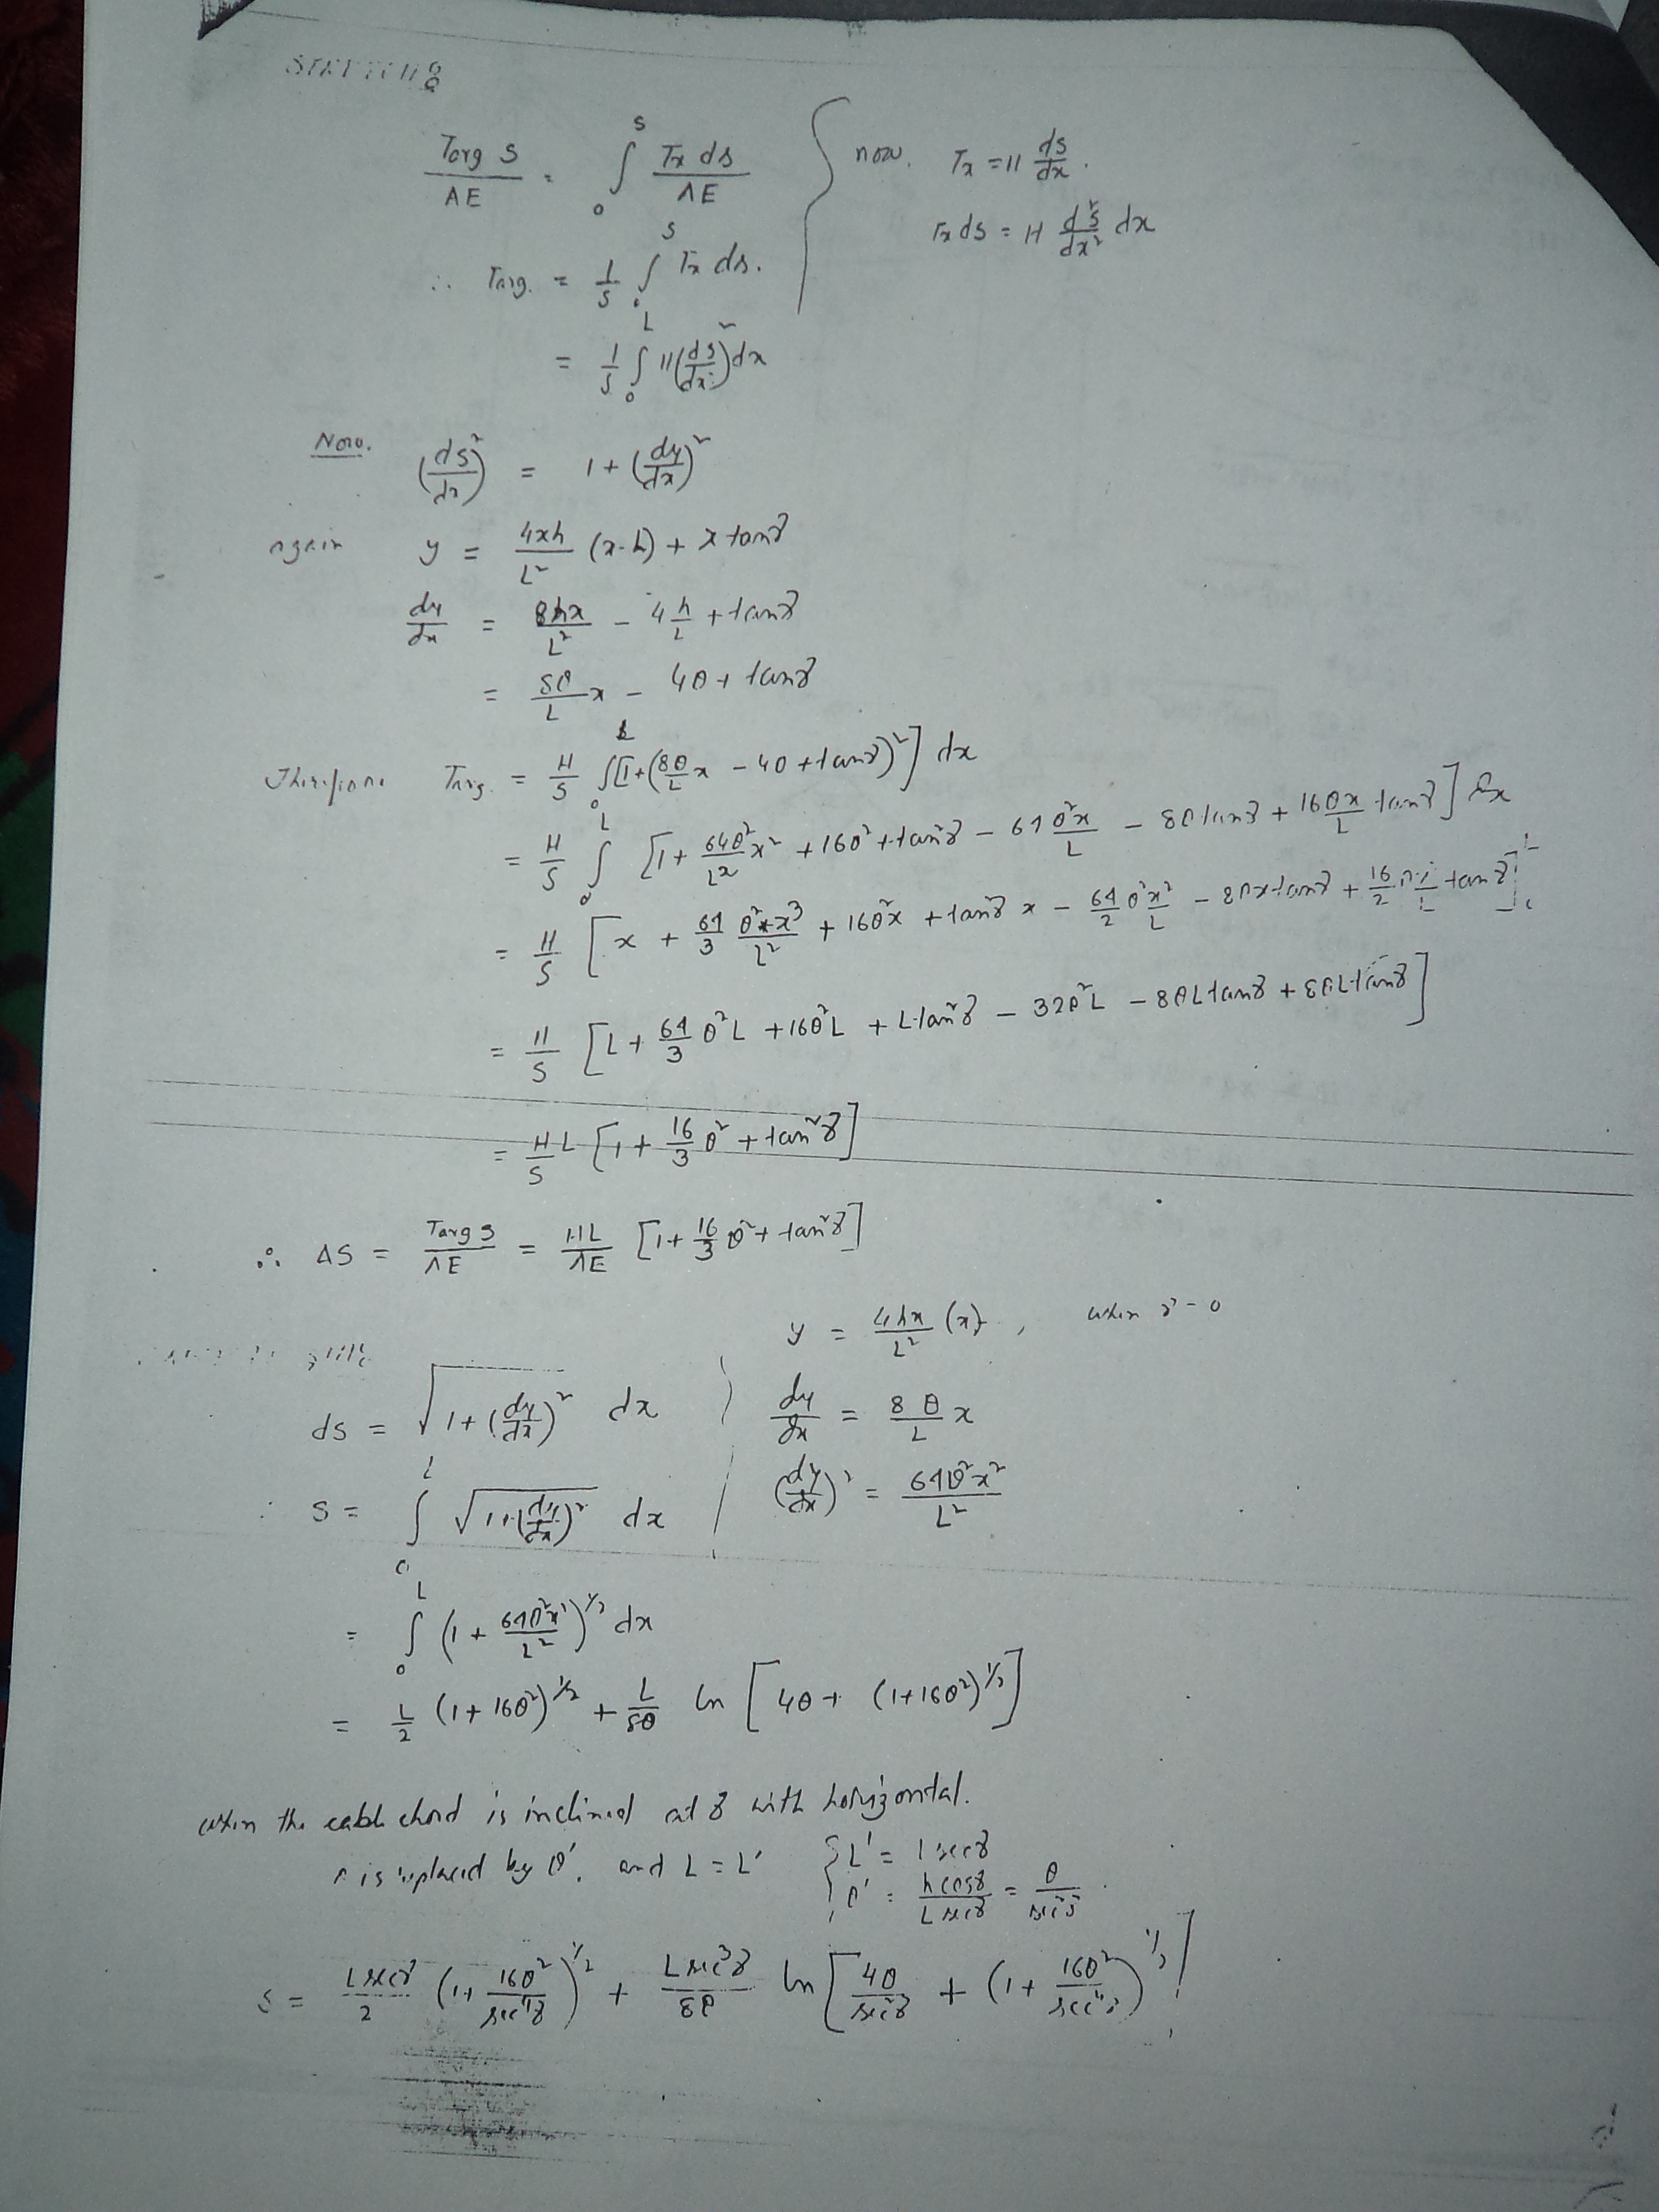 Targ S / AE = ∫₀ˢ Tx ds / AE { now. Tx = H ds/dx .
Tx ds = H d²s/dx² dx
∴ Targ. = 1/S ∫₀ˢ Tx ds.
= 1/S ∫₀ᴸ H(ds/dx)² dx
Now. (ds/dx)² = 1 + (dy/dx)²
again y = 4xh/L² (x-L) + x tanγ
dy/dx = 8hx/L² - 4h/L + tanγ
= 8θ/L x - 4θ + tanγ
Therefore Targ. = H/S ∫₀ᴸ [1 + (8θ/L x - 4θ + tanγ)²] dx
= H/S ∫₀ᴸ [1 + 64θ²/L² x² + 16θ² + tan²γ - 64 θ²x/L - 8θ tanγ + 16θx/L tanγ] dx
= H/S [x + 64/3 θ²x³/L² + 16θ²x + tan²γ x - 64/2 θ²x²/L - 8θx tanγ + 16/2 θx²/L tanγ]₀ᴸ
= H/S [L + 64/3 θ²L + 16θ²L + L tan²γ - 32θ²L - 8θL tanγ + 8θL tanγ]
= H/S L [1 + 16/3 θ² + tan²γ]
∴ ΔS = Targ S / AE = HL/AE [1 + 16/3 θ² + tan²γ]
y = 4hx/L² (x), when γ = 0
ds = √(1 + (dy/dx)²) dx | dy/dx = 8θ/L x
∴ S = ∫₀ᴸ √(1 + (dy/dx)²) dx | (dy/dx)² = 64θ²x²/L²
= ∫₀ᴸ (1 + 64θ²x²/L²)^1/2 dx
= L/2 (1 + 16θ²)^1/2 + L/8θ ln [4θ + (1 + 16θ²)^1/2]
when the cable chord is inclined at γ with horizontal.
θ is replaced by θ', and L = L' { L' = L secγ
θ' = h cosγ / L secγ = θ / sec²γ .
S = L secγ/2 (1 + 16θ²/sec⁴γ)^1/2 + L sec³γ/8θ ln [4θ/sec²γ + (1 + 16θ²/sec⁴γ)^1/2]